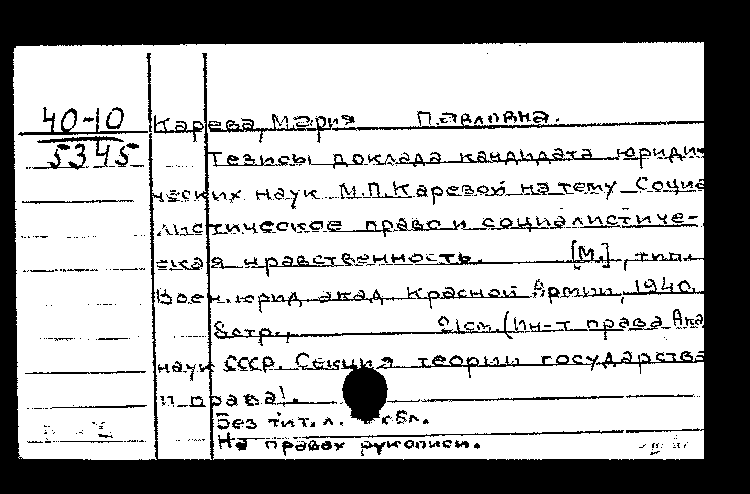 40-10
5345
Карева, Мария Павловна.
Тезисы доклада кандидата юриди
ческих наук М.П.Каревой на тему Социа
листическое право и социалистиче-
ская нравственность. [М.], тип.
Воен.юрид.акад. Красной Армии, 1940.
8стр., 21см. (Ин-т права Ака
наук СССР. Секция теории государства
и права).
Без тит. л. и обл.
На правах рукописи.